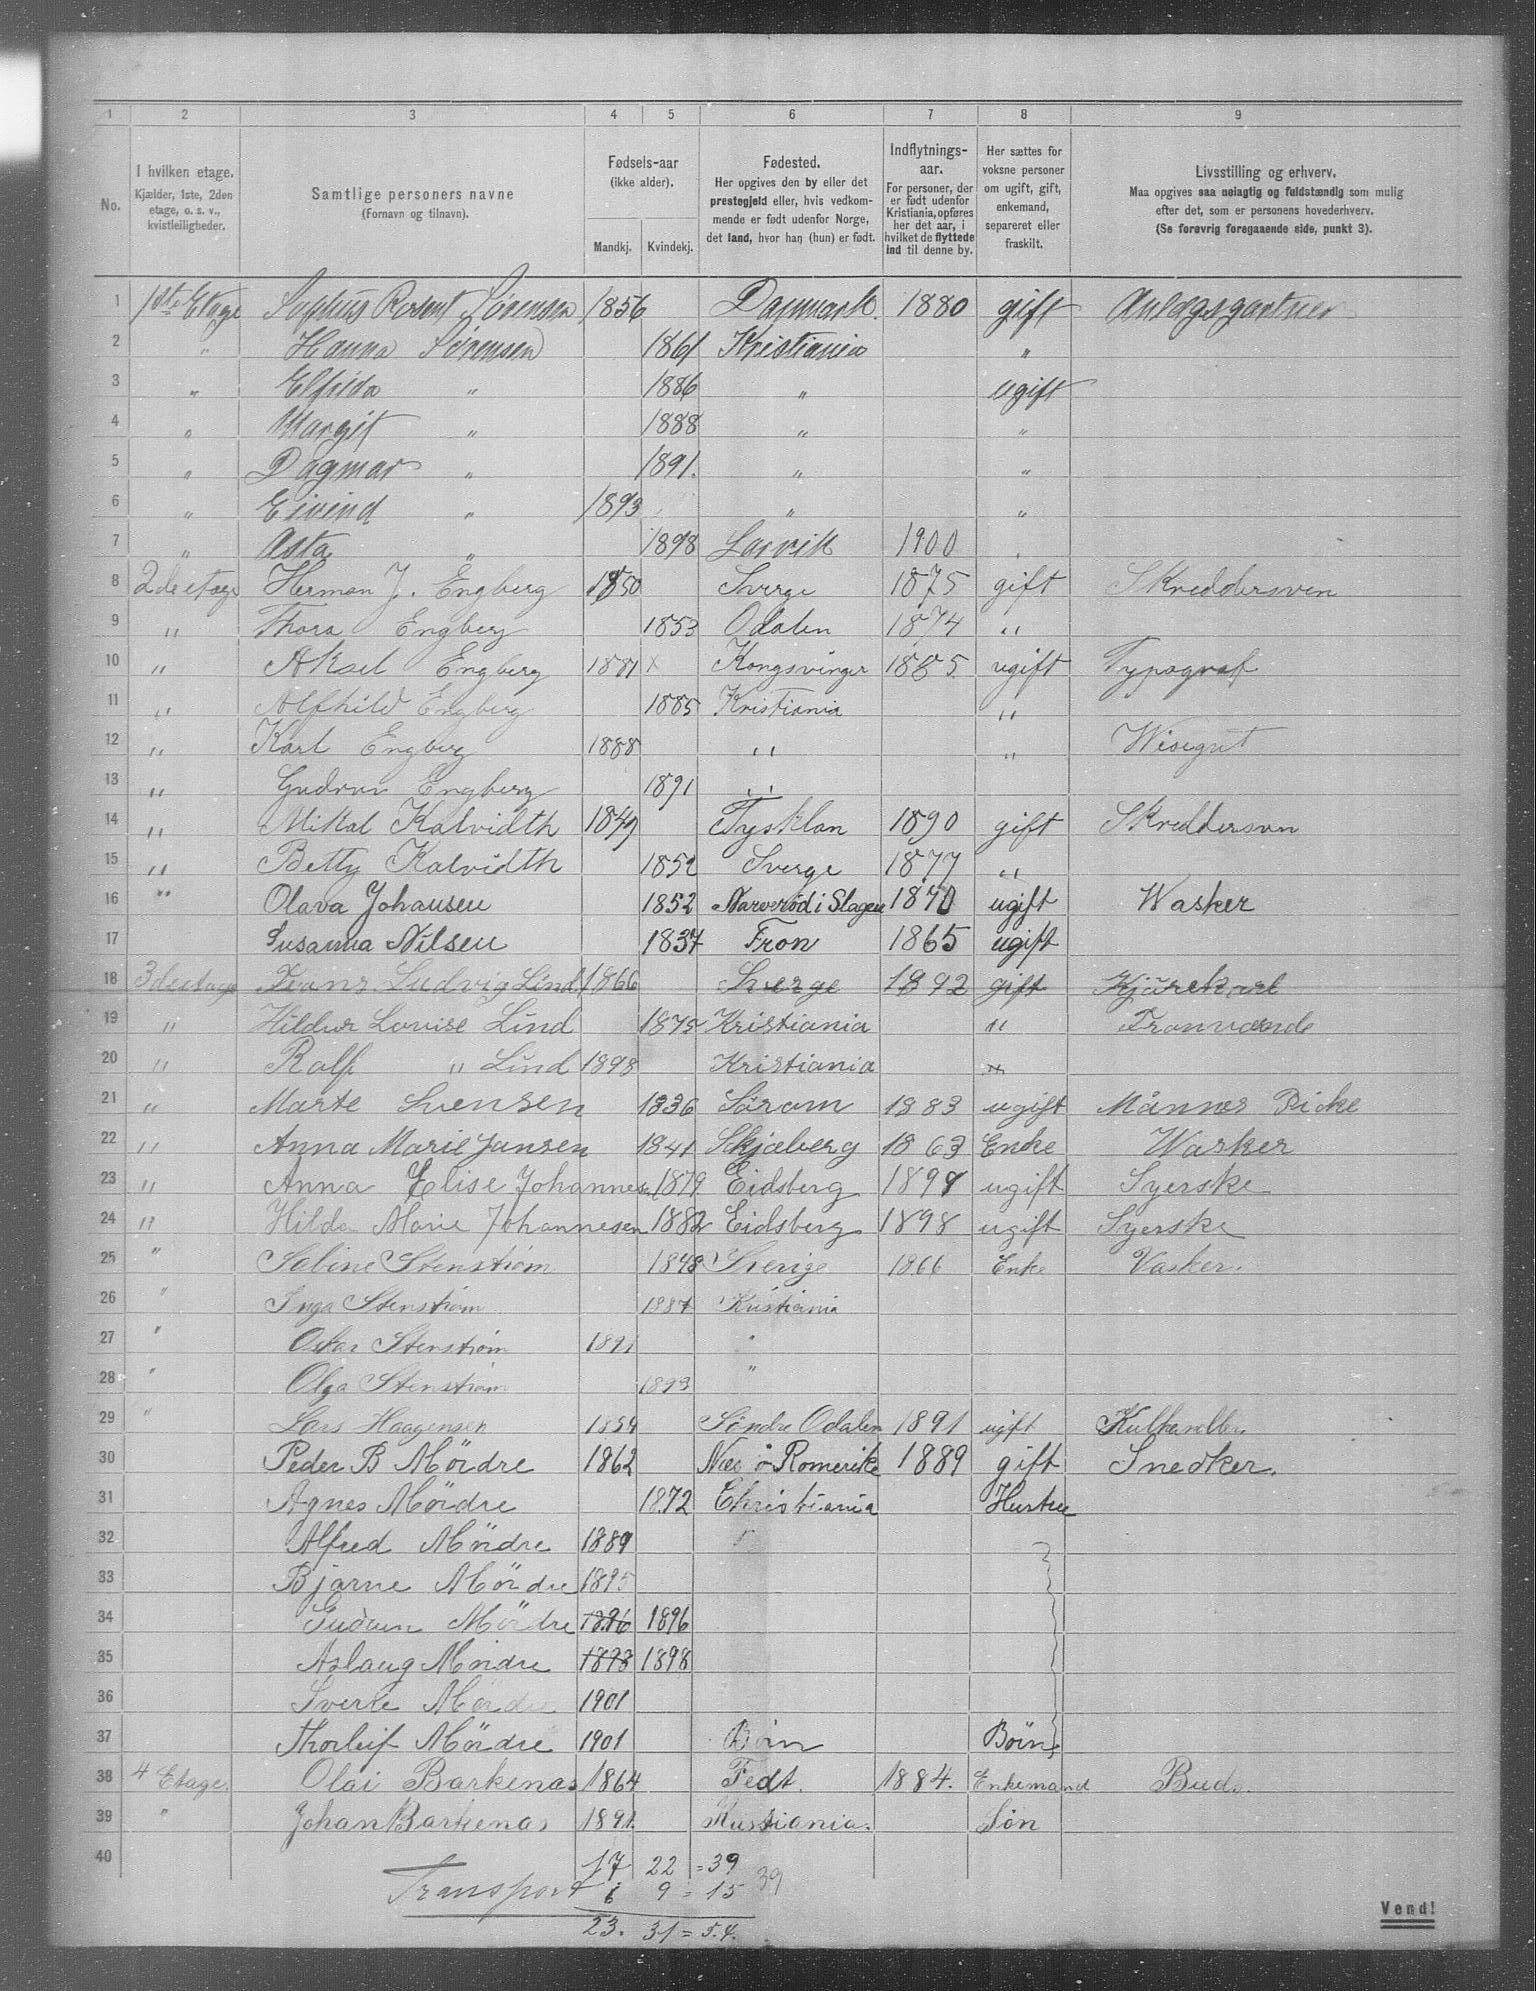 1 2 3 4 5 6 7 8 9
No.
I hvilken etage.
Kjælder, 1ste, 2den
etage, o. s. v.,
kvistleiligheder.
Samtlige personers navne
(Fornavn og tilnavn).
Fødsels-aar
(ikke alder).
Mandkj. Kvindekj.
Fødested.
Her opgives den by eller det
prestegjeld eller, hvis vedkom-
mende er født udenfor Norge,
det land, hvor han (hun) er født.
Indflytnings-
aar.
For personer, der
er født udenfor
Kristiania, opføres
her det aar, i
hvilket de flyttede
ind til denne by.
Her sættes for
voksne personer
om ugift, gift,
enkemand,
separeret eller
fraskilt.
Livsstilling og erhverv.
Maa opgives saa nøiagtig og fuldstændig som mulig
efter det, som er personens hovederhverv.
(Se forøvrig foregaaende side, punkt 3).
1 1ste Etage Sophus Sørensen 1856 Danmark. 1880 gift Anlægsgartner
2 " Hanna Sørensen 1861 Kristiania "
3 " Elfrida " 1886 " ugift
4 " Margit " 1888 " "
5 " Dagmar " 1891. " "
6 " Eivind " 1893 " "
7 " Asta " 1898 Larvik 1900
8 2de etage Herman J. Engberg 1850 Sverge 1875 gift Skreddersven
9 " Thora Engberg 1853 Odalen 1874 "
10 " Aksel Engberg 1881 x Kongsvinger 1885. ugift Typograf
11 " Alfhild Engberg 1885 Kristiania "
12 " Karl Engberg 1888 " " Wisegut
13 " Gudrun Engberg 1891 "
14 " Mikal Kalvidth 1849 Tysklan 1890 gift Skreddersven
15 " Betty Kalvidth 1852 Sverge 1877 "
16 " Olava Johansen 1852 Narverød i Slagen 1870 ugift Wasker
17 Susanna Nilsen 1837 Fron 1865 ugift
18 3de etage Frans Ludvig Lind 1866 Sverge 1892 gift Kjørekarl
19 " Hildur Lovise Lind 1875 Kristiania "
20 " Ralf " Lind 1898 Kristiania
21 " Marte Svensen 1836 Sörom 1883 ugift
22 " Anna Marie Jansen 1841 Skjæberg 1863 Enke Wasker
23 " Anna Elise Johannesen 1879 Eidsberg 1898 ugift Syerske
24 " Hilda Marie Johannesen 1882 Eidsberg 1898 ugift Syerske
25 " Sabine Stenstrøm 1848 Sverige 1866 Enke Vasker.
26 " Inga Stenstrøm 1887 Kristiania
27 " Oskar Stenstrøm 1891 "
28 " Olga Stenstrøm 1893 "
29 " Lars Haagensen 1854 Söndre Odalen 1891 ugift
30 Peder B Mördre 1862 Nes å Romerike 1889 gift Snedker.
31 Agnes Mördre 1872 Christiania Hustru
32 Alfred Mördre 1889 "
33 Bjarne Mördre 1895
34 Gudrun Mördre 1896 1896
35 Aslaug Mördre 1898 1898
36 Sverre Mördre 1901
37 Thorleif Mördre 1901 Börn Börn
38 4 Etage. Olai Barkenas 1864 Fedt. 1884. Enkemand Bud.
39 " Johan Barkenas 1891. Kristiania. Søn
40
17 22 = 39 39
Transport 6 9 = 15
23. 31 = 54.
Vend!